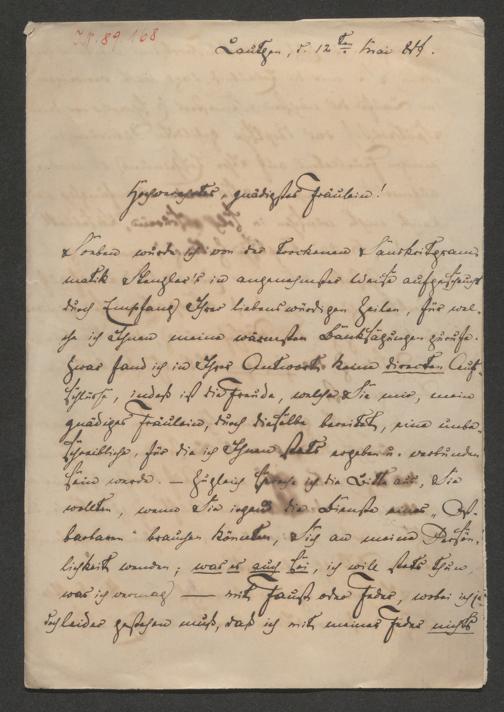 I.N. 89.168
d. 12ten Mai
Hochverehrtes, gnädigstes Fräulein!
Soeben wurde ich von der trockenen Sanskritgram-
matik Stenzler's in angenehmster Weise aufgescheucht
durch Empfang Ihrer liebenswürdigen Zeilen, für wel-
che ich Ihnen meine wärmsten Danksagungen zurufe.
Zwar fand ich in Ihrer Antwort keine directen Auf-
schlüsse, indeß ist die Freude, welche Sie mir, mein
gnädiges Fräulein, durch dieselbe bereitet, eine unbe-
schreibliche, für die ich Ihnen stets ergeben u. verbunden
sein werde. — Zugleich spreche ich die Bitte aus, Sie
wollten, wenn Sie irgend die Dienste eines
barbaren brauchen könnten, sich an meine Persön-
lichkeit wenden; was es auch sei, ich will stets thun,
was ich vermag — mit Faust oder Feder, wobei ich je-
doch leider gestehen muß, daß ich mit meiner Feder nichts